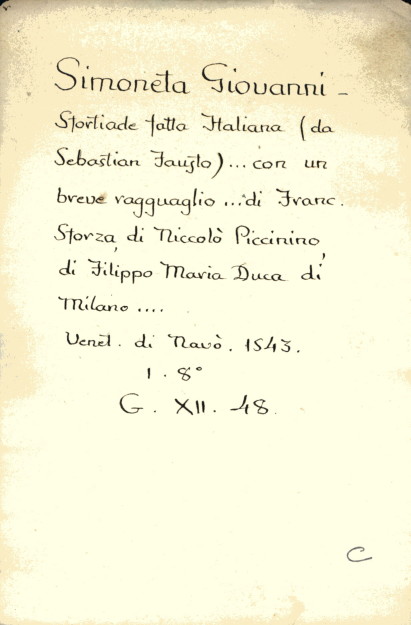 Simoneta Giovanni -
Sfortiade fatta Italiana (da
Sebastian Fausto)... con un
breve ragguaglio ... di Franc.
Sforza, di Niccolò Piccinino,
di Filippo Maria Duca di
Milano ....
Venet. di Navò. 1543.
1. 8°
G. XII. 48.
C